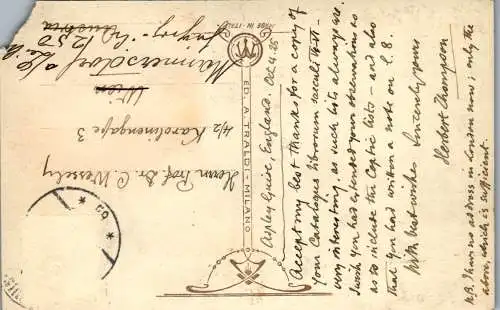 Aspley Guise, England. Oct. 4. 25
Accept my best thanks for a copy of
your Catalogus librorum saeculi VIII -
very interesting, as such lists always are.
I wish you had extended your observations so
as to include the Coptic lists - and also
that you had written a note on l. 8.
With best wishes
Sincerely yours
Herbert Thompson
N.B. I have no address in London now; only the
above which is sufficient.
MADE IN ITALY
ED. A. TRALDI - MILANO
Herrn Prof. Dr. C. Wessely
4/2 Karolinengasse 3
Wien